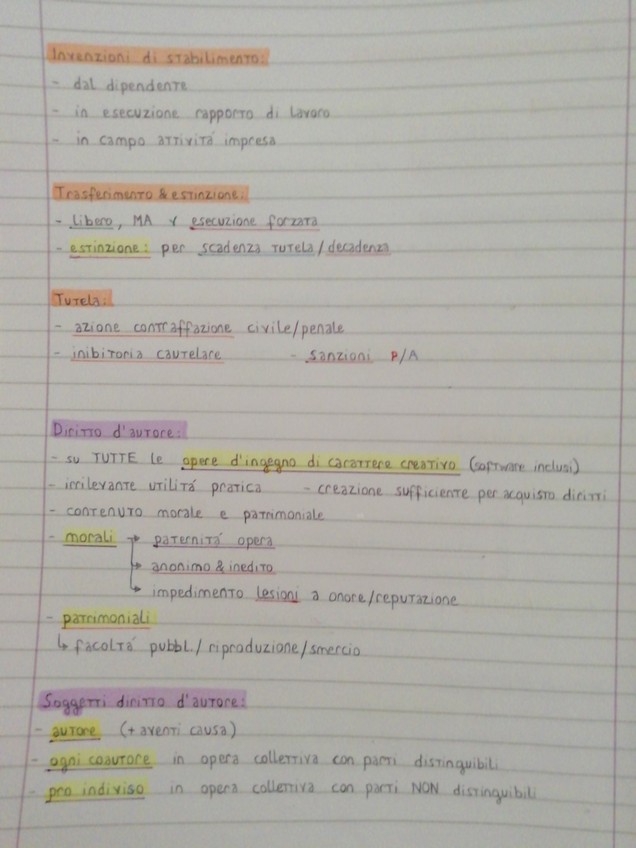 Invenzioni di stabilimento:
- dal dipendente
- in esecuzione rapporto di lavoro
- in campo attività impresa
Trasferimento & estinzione:
- libero, MA esecuzione forzata
- estinzione: per scadenza tutela/decadenza
Tutela:
- azione contraffazione civile/penale
- inibitoria cautelare - sanzioni P/A
Diritto d'autore:
- su TUTTE le opere d'ingegno di carattere creativo (software inclusi)
- irrilevante utilità pratica - creazione sufficiente per acquisto diritti
- contenuto morale e patrimoniale
- morali → paternità opera
↳ anonimo & inedito
↳ impedimento lesioni a onore/reputazione
- patrimoniali
↳ facoltà pubbl./riproduzione/smercio
Soggetti diritto d'autore:
- autore (+ aventi causa)
- ogni coautore in opera collettiva con parti distinguibili
- pro indiviso in opera collettiva con parti NON distinguibili